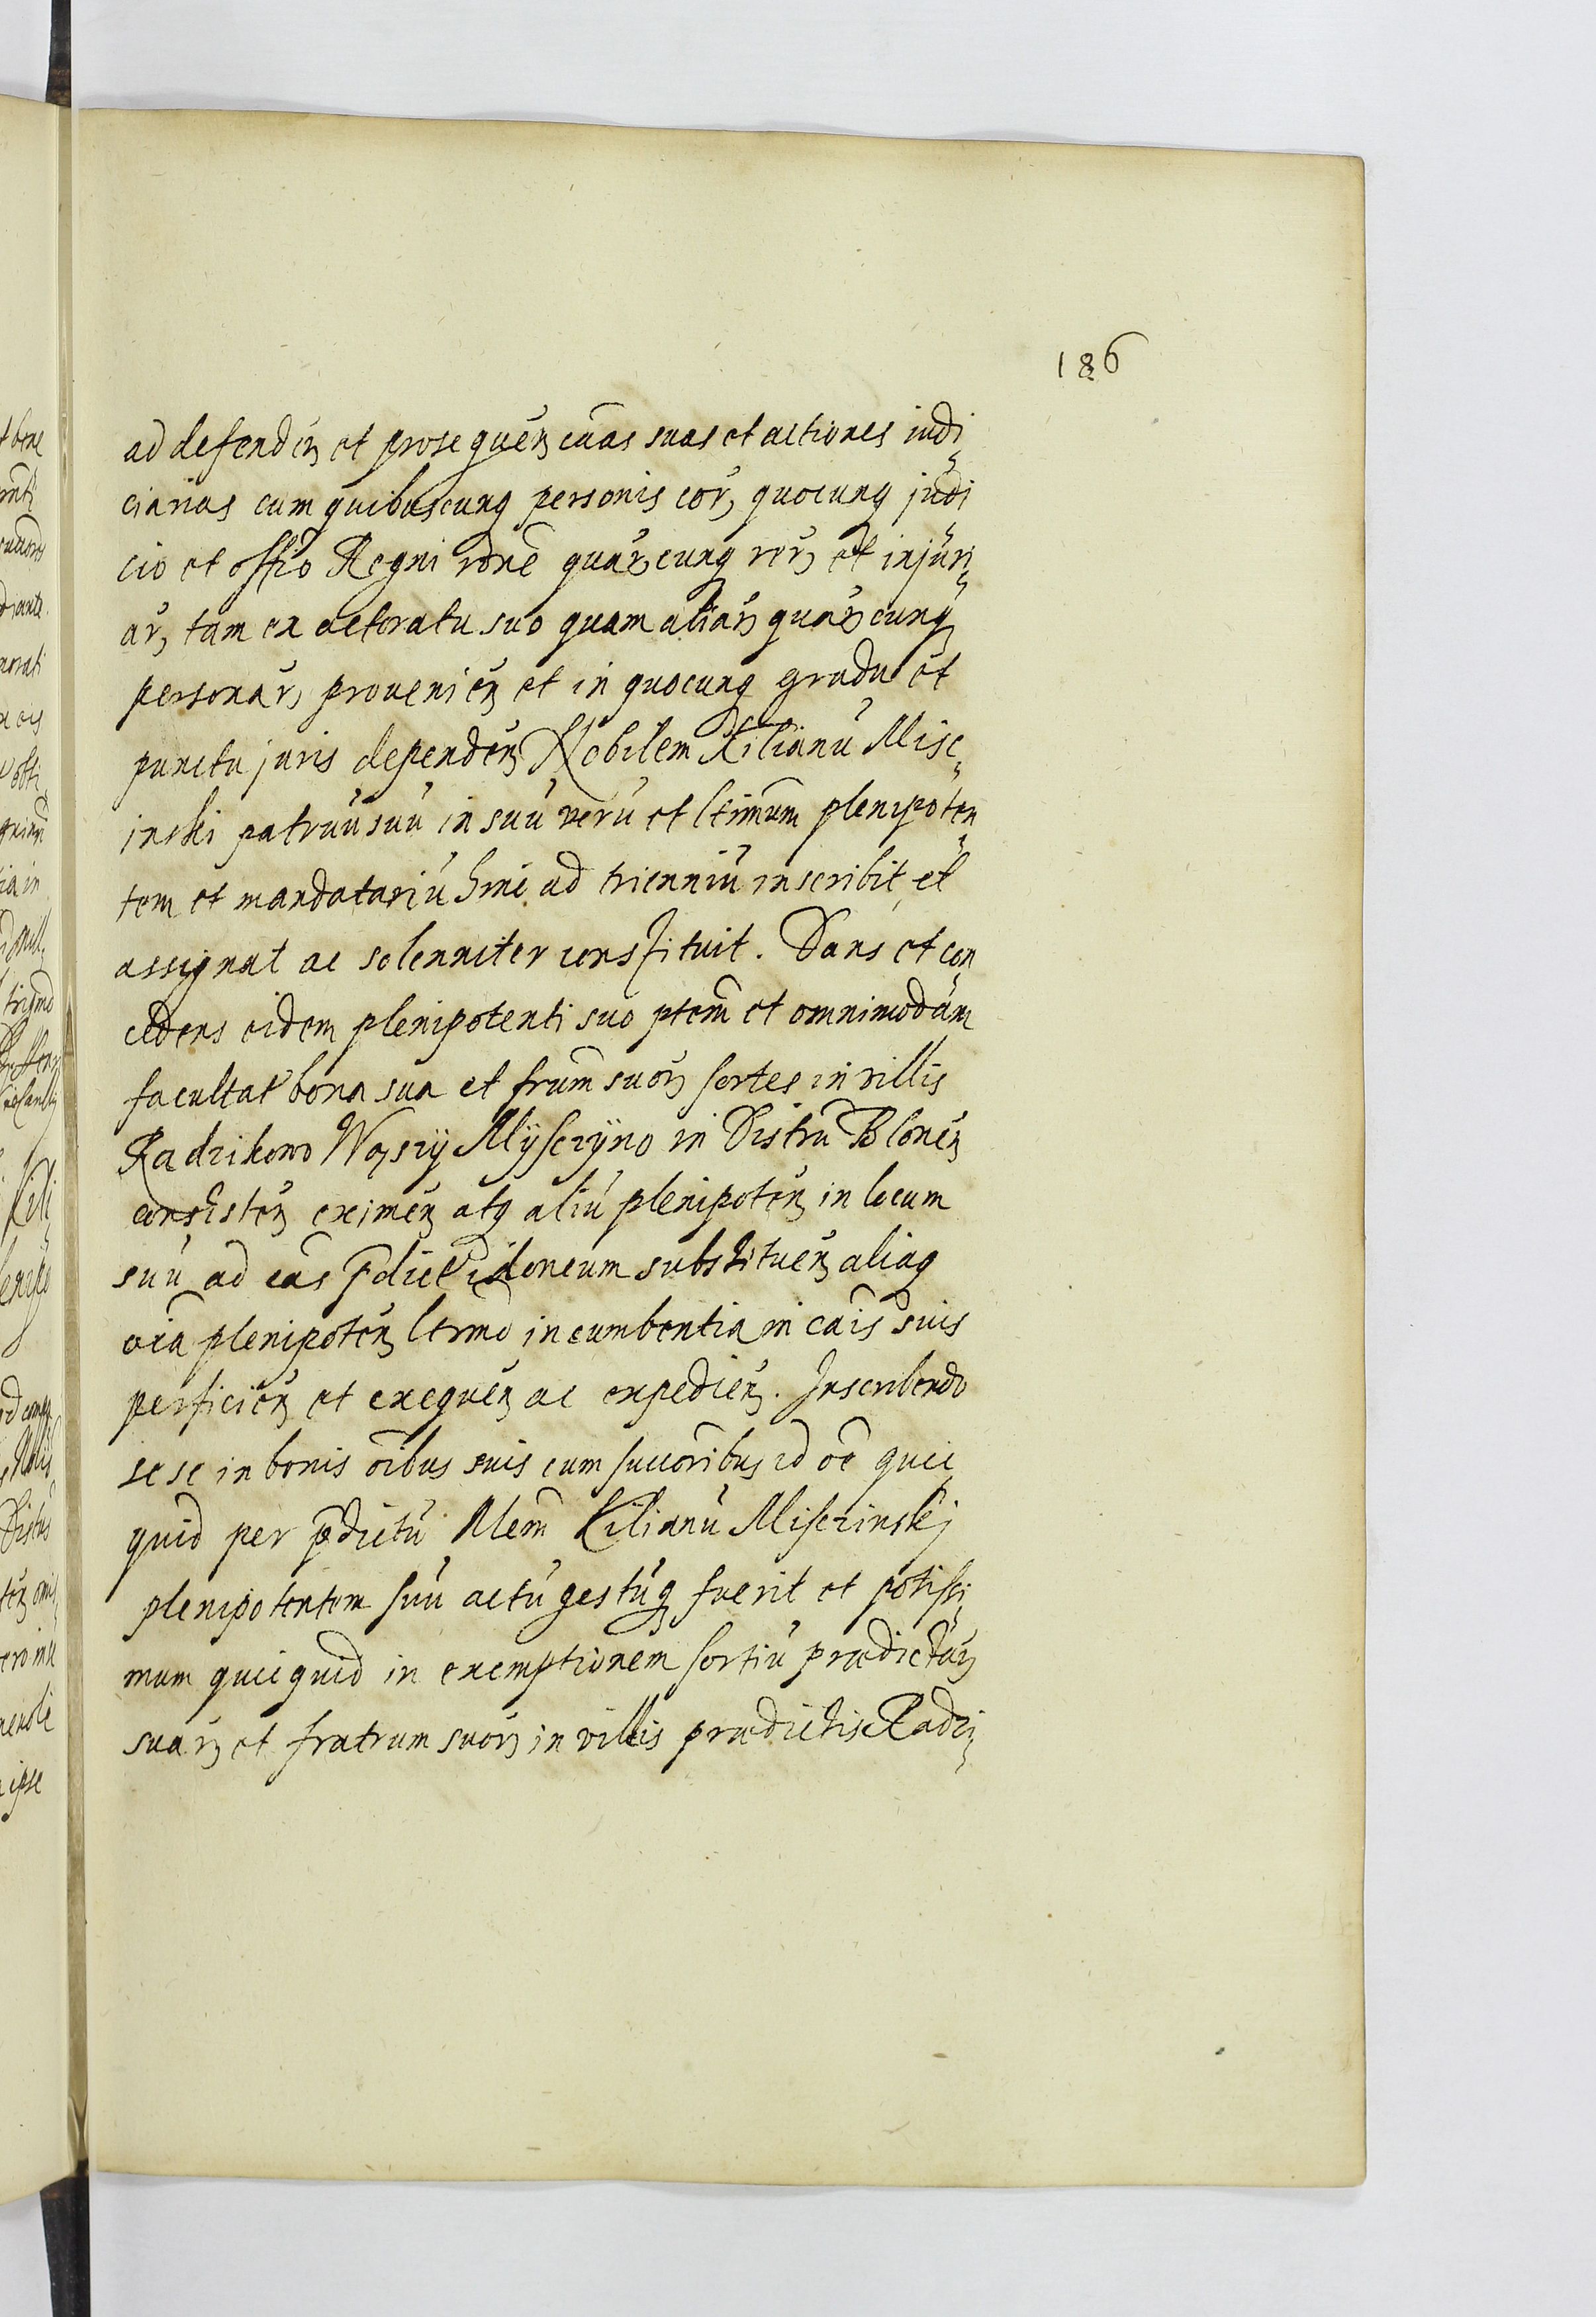 186
ad defendeñ et prosequeñ cãas suas et actiones judi„
ciarias cum quibuscunq personis corꝫ quocunq judi
cio et offio Regni rõne quarꝫcunq rerꝫ et injuri„
arꝫ tam ex actoratu suo quam aliarꝫ quarꝫcunq
personarꝫ provenieñ et in quocunq gradu et
punctu juris dependeñ Nobilem Kilianũ Misc„
inski patruũ suũ in suũ verũ et ltimum plenipoten„
tem et mandatariũ hinc ad trienniũ inscribit et
assignat ac solenniter constituit. Dans et con„
cedens eidem plenipotenti suo ptem̃ et omnimodam
facultat̃ bona sua et frum̃ suorꝫ sortes in villis
Radzikowo Wąszÿ Mÿsczÿno in Distrũ Bloneñ
consisteñ eximeñ atq aliũ plenipoteñ in locum
suũ ad cãs p̃dict̃ idoneum substitueñ aliaq
oĩa plenipoteñ ltimo incumbentia in cãis suis
perficieñ et exequeñ ac expedieñ. Inscribendo
sese in bonis oĩbus suis cum succoribus id oẽ quic„
quid per p̃dictũ Nlem̃ Kilianũ Misczinskj
plenipotentem suũ actũ gestũq fuerit et potissi„
mum quicquid in exemptionem sortiũ prædictarꝫ
suarꝫ et fratrum suorꝫ in villis prædictis Radzi„